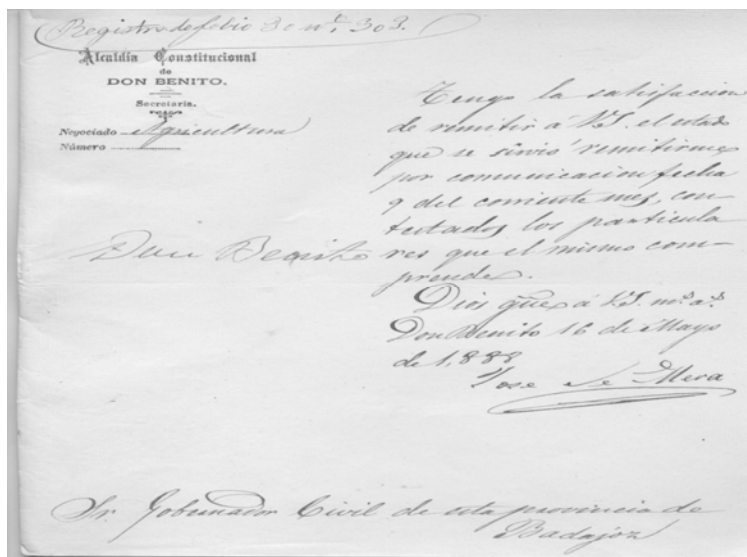 Registro de folio 30 nº 303.
Alcaldía Constitucional
de
DON BENITO.
Secretaria.
Negociado Agricultura
Número
Don Benito
Tengo la satisfaccion
de remitir á V.S. el estado
que se sirvió remitirme
por comunicacion fecha
9 del corriente mes, con-
testados los particula
res que el mismo com-
prende.
Dios gue á V.S. ms. as.
Don Benito 16 de Mayo
de 1,888
Jose de Mera
Sr. Gobernador Civil de esta provincia de
Badajoz